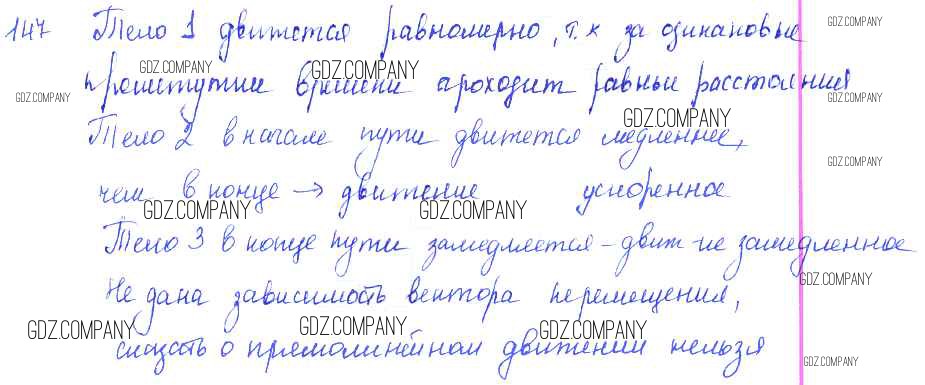 147 Тело 1 движется равномерно, т.к за одинаковые
промежутки времени проходит равные расстояния
Тело 2 в начале пути движется медленнее,
чем в конце → движение ускоренное
Тело 3 в конце пути замедляется – движ-ие замедленное
Не дана зависимость вектора перемещения,
сказать о прямолинейном движении нельзя
GDZ.COMPANY
GDZ.COMPANY
GDZ.COMPANY
GDZ.COMPANY
GDZ.COMPANY
GDZ.COMPANY
GDZ.COMPANY
GDZ.COMPANY
GDZ.COMPANY
GDZ.COMPANY
GDZ.COMPANY
GDZ.COMPANY
GDZ.COMPANY
GDZ.COMPANY